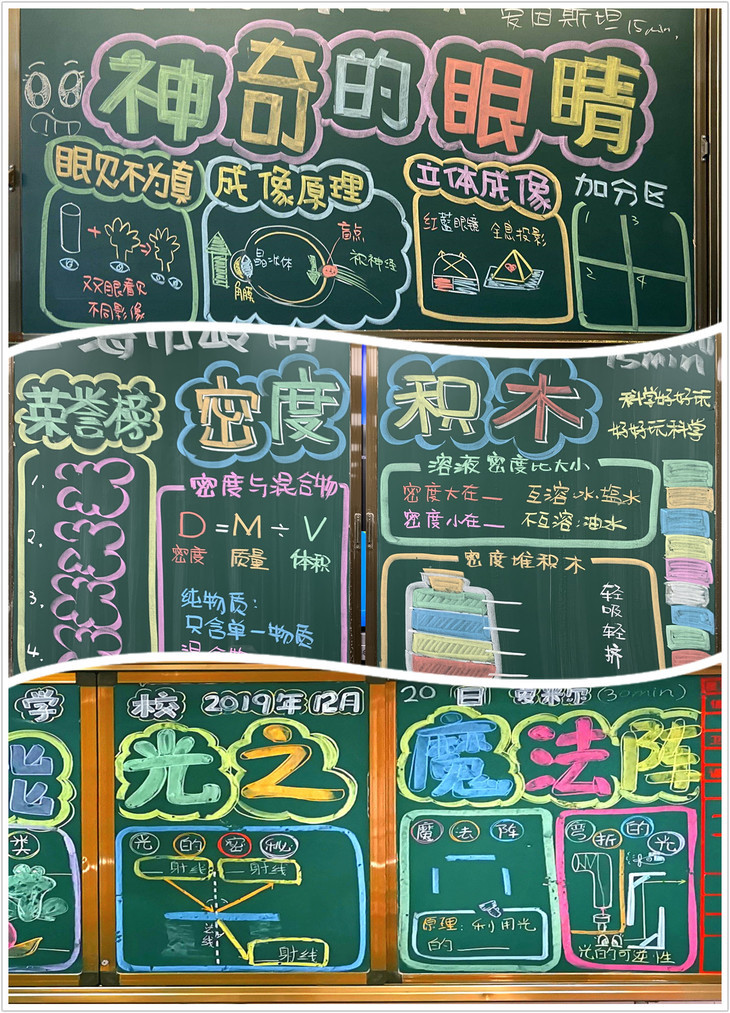 爱因斯坦 15min.
神奇的眼睛
眼见不为真
双眼看见
不同影像
成像原理
晶状体
角膜
盲点
视神经
立体成像
红蓝眼镜 全息投影
加分区
1 3
2 4
15min
荣誉榜
1.
2.
3.
4.
密度
密度与混合物
D=M÷V
密度 质量 体积
纯物质:
只含单一物质
混合物
积木
科学好好玩
好好玩科学
溶液密度比大小
密度大在__ 互溶:水.盐水
密度小在__ 不互溶:油水
密度堆积木
轻吸轻挤
学校 2019年12月20日 安米尔(30min)
类
光之魔法阵
光的密秘
__射线 __射线
法线
__射线
魔法阵
原理:利用光
的____
弯折的光
光的可逆性